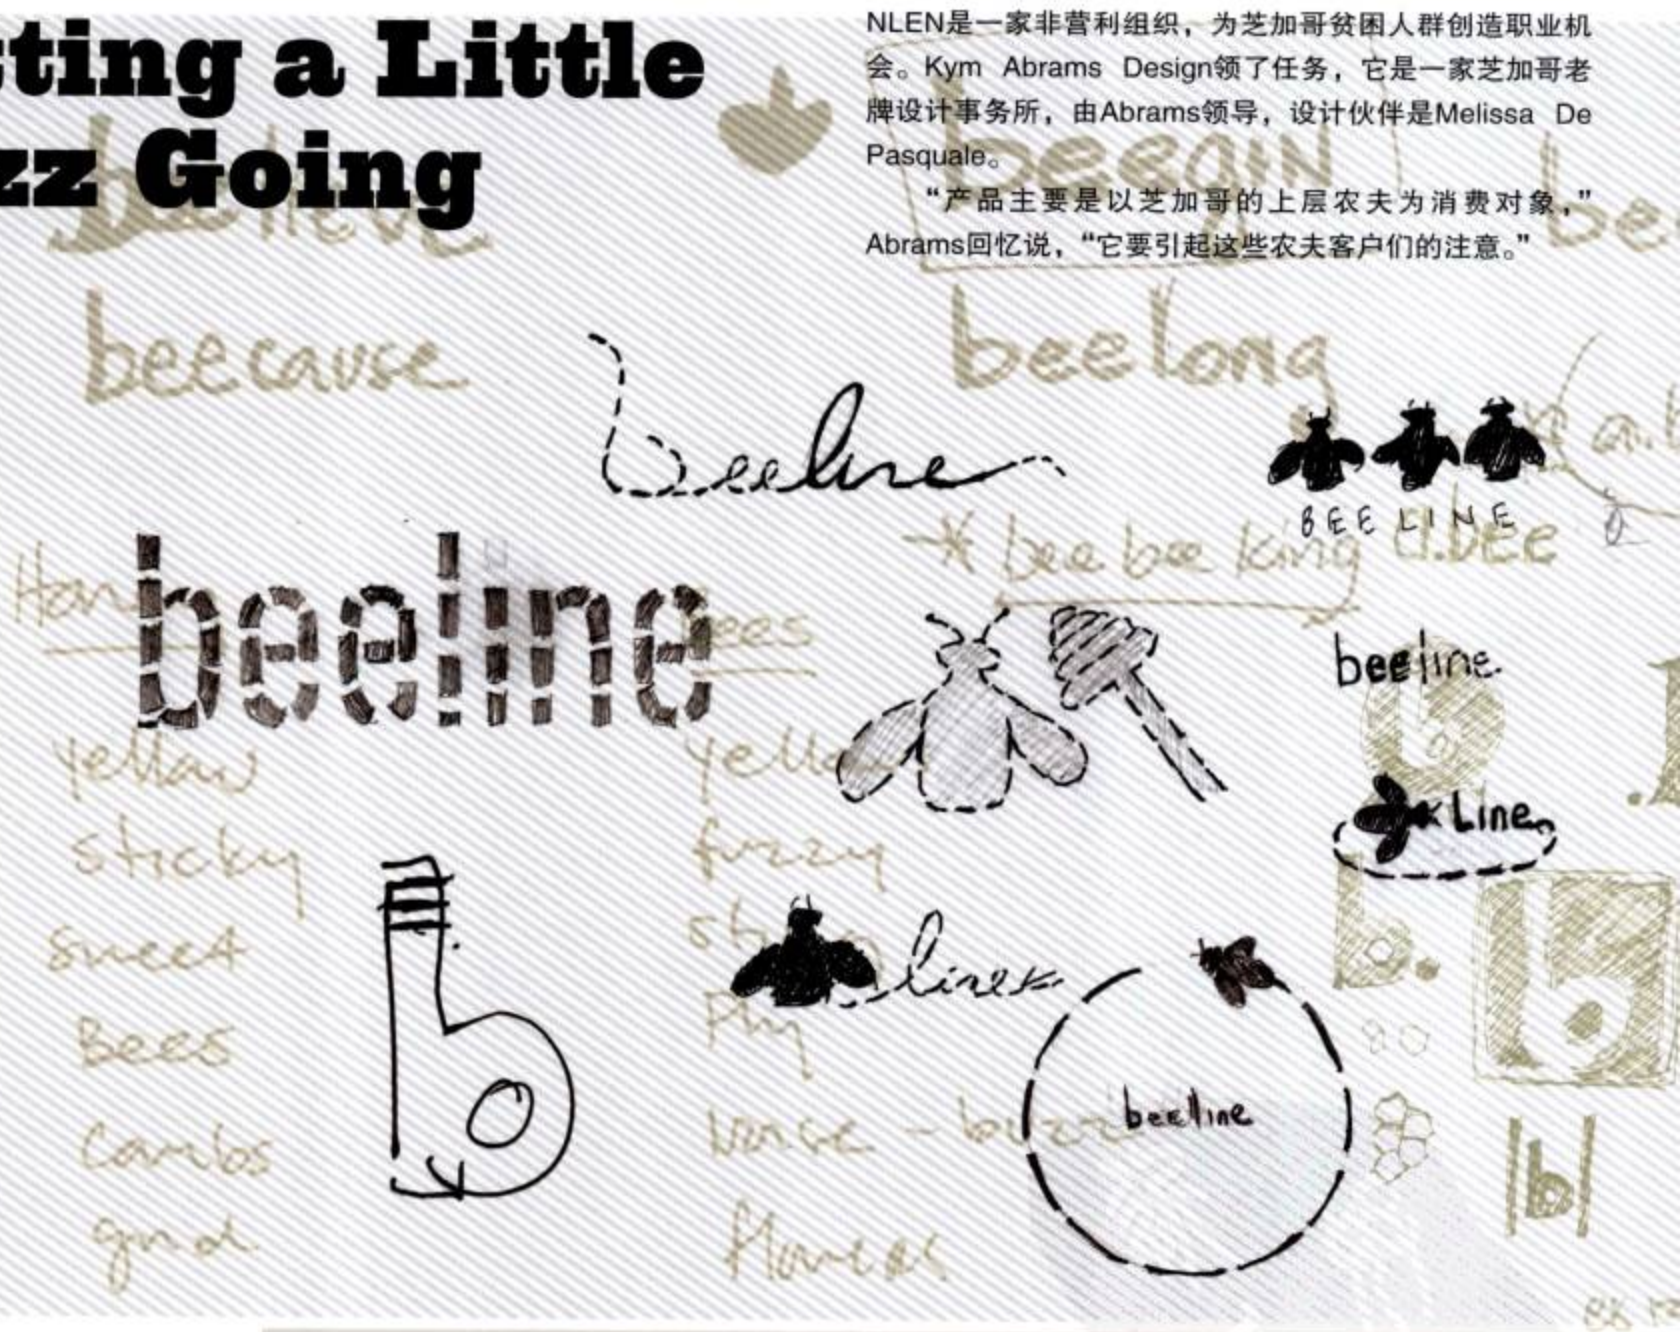 tting a Little
zz Going
NLEN是一家非营利组织，为芝加哥贫困人群创造职业机
会。Kym Abrams Design领了任务，它是一家芝加哥老
牌设计事务所，由Abrams领导，设计伙伴是Melissa De
Pasquale。
“产品主要是以芝加哥的上层农夫为消费对象，”
Abrams回忆说，“它要引起这些农夫客户们的注意。”
believe
beegin
bee
beecause
beelong
beeline
BEE LINE
* bee bee king
U.bee
Hon
beeline
bees
beeline.
b
Line
yellow
sticky
sweet
Bees
Combs
b
yell
fuzzy
line
Fly
voice - buzz
flowers
beeline
b.
b
b